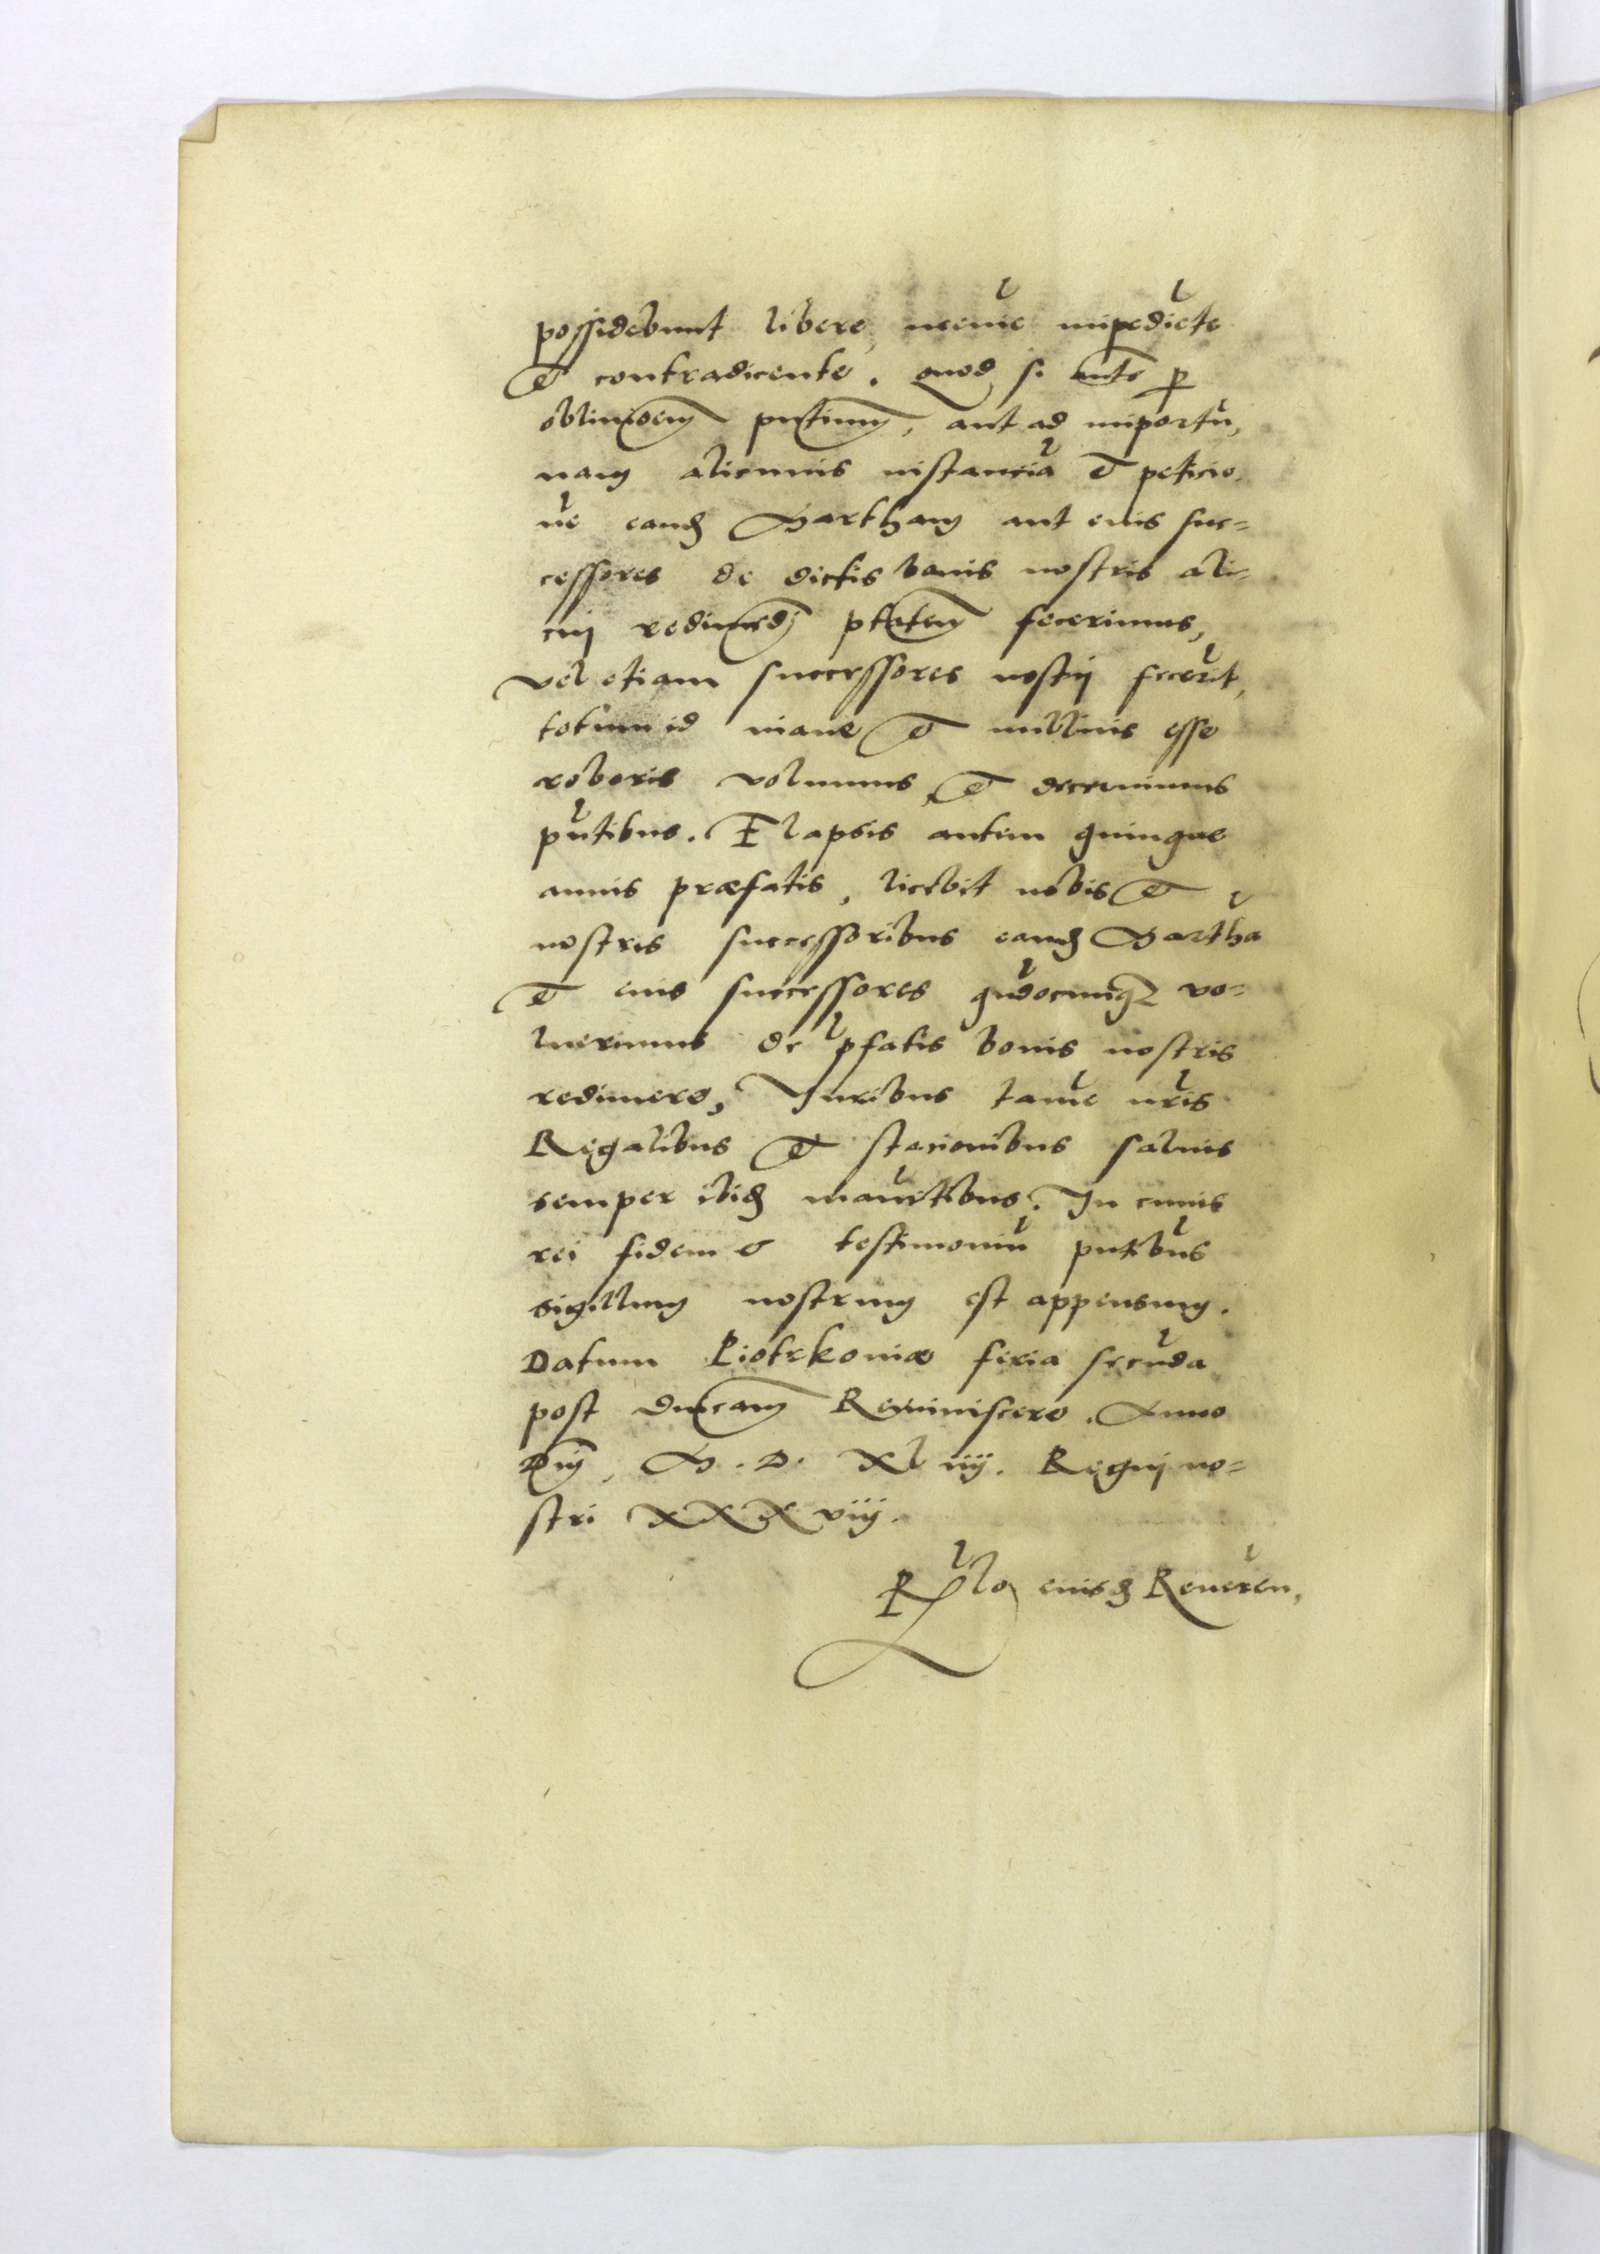 possidebunt libere, nemīe impediēte
et contradicente. Quod si ante p̱
oblivioem pn̄tium, aut ad importu,
nam alicuius instanciā et peticio
nē eand Martham aut eius suc=
cessores de dictis bonis nostris ali=
cui redimedj ptātem fecerimus,
vel etiam successores nostrj fecerīt,
totum id inane et nullius esse
roboris volumus, et decernimus
pn̄tibus. Elapsis autem quinque
annis præfatis, licebit nobis et
nostris successoribus eand Marthā
et eius successores qūdocunqꝫ vo=
luerimus de p̄fatis bonis nostris
redimere, Iuribus tamē nr̄is
Regalibus et stacionibus salvis
semper ibid manēntibus. In cuius
rei fidem & testimoniū pn̄tibus
sigillum nostrum est appensum.
Datum Piotrkoviæ feria secūda
post dnicam Reminiscere. Anno
Dnj, M. D. XLiiij. Regnj no=
stri XXXviij.
Rlo eiusd Reveren,